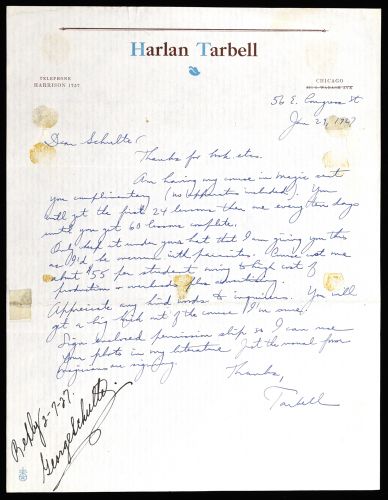 Harlan Tarbell
TELEPHONE
HARRISON 1737
CHICAGO
56 E. Congress St
Jan 29, 1927
Dear Schulte
Thanks for book etc.
Am having my course in magic sent
you complimentary (no apparatus included). You
will get the first 24 lessons then one every ten days
until you get 60 lessons complete.
Only keep it under your hat that I am giving you this
as I'd be overrun with parasites. Course cost me
about $55 per student owing to high cost of
production & overhead plus advertising.
Appreciate any kind words to inquirers. You will
get a big kick out of the course I'm sure.
Sign enclosed permission slip so I can use
your photo in my literature. Just the usual form
magicians are signing.
Thanks,
Tarbell
Reply 2-7-27.
George Schulte.